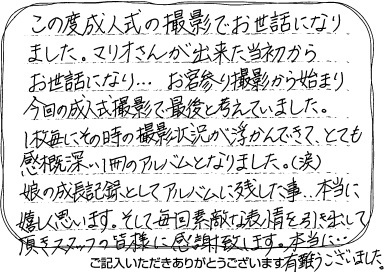 この度成人式の撮影でお世話になり
ました。マリオさんが出来た当初から
お世話になり… お宮参り撮影から始まり
今回の成人式撮影で最後と考えていました。
1枚毎にその時の撮影状況が浮かんできて、とても
感概深い1冊のアルバムとなりました。(涙)
娘の成長記録としてアルバムに残した事、本当に
嬉しく思います。そして毎回素敵な表情を引き出して
頂きスタッフの皆様に感謝致します。本当に…
ご記入いただきありがとうございます 有難うございました。